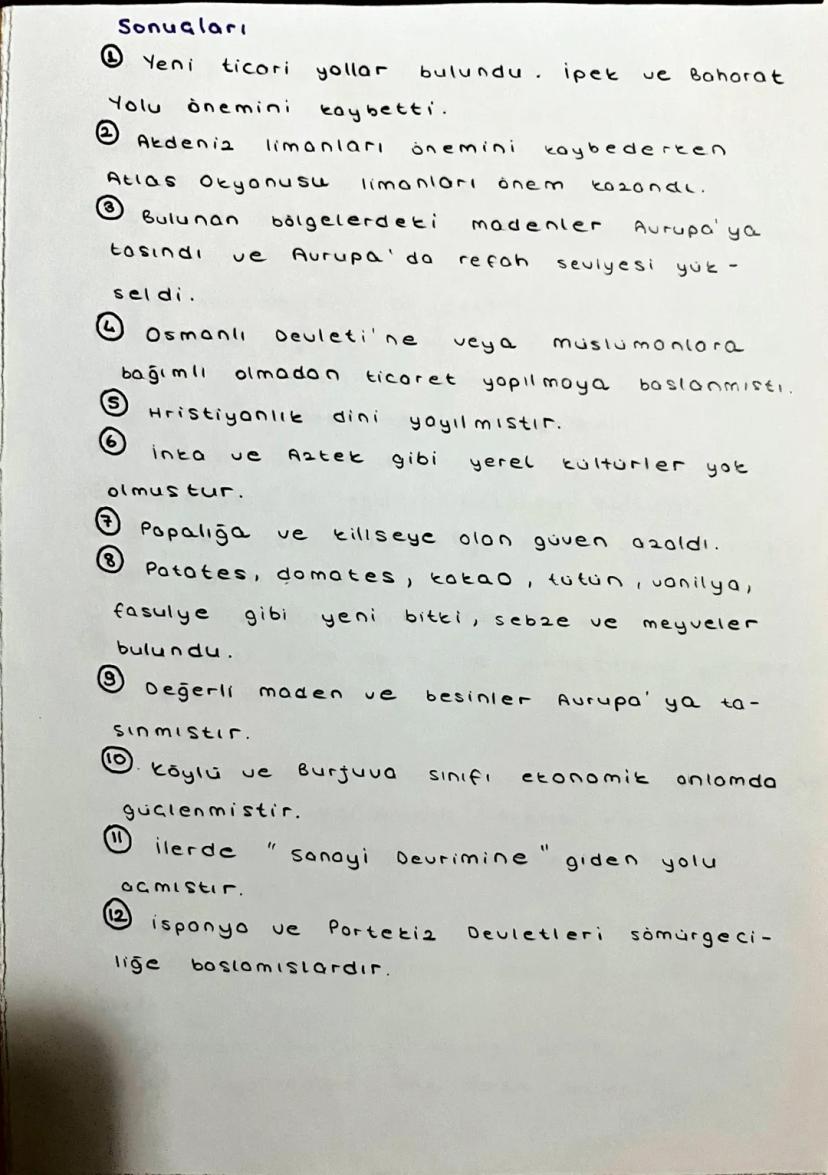 Sonuçları
① Yeni ticari yollar bulundu. İpek ve Baharat
Yolu önemini kaybetti.
② Akdeniz limanları önemini kaybederken
Atlas Okyanusu limanları önem kazandı.
③ Bulunan bölgelerdeki madenler Avrupa'ya
tasındı ve Avrupa'da refah seviyesi yük-
seldi.
④ Osmanlı Devleti'ne veya müslümanlara
bağımlı olmadan ticaret yapılmaya baslanmıstı.
⑤ Hristiyanlık dini yayılmıstır.
⑥ İnka ve Aztek gibi yerel kültürler yok
olmustur.
⑦ Papalığa ve kiliseye olan güven azaldı.
⑧ Patates, domates, kakao, tütün, vanilya,
fasulye gibi yeni bitki, sebze ve meyveler
bulundu.
⑨ Değerli maden ve besinler Avrupa'ya ta-
sınmıstır.
⑩ Köylü ve Burjuva sınıfı ekonomik anlamda
güçlenmistir.
⑪ ilerde "Sanayi Devrimine" giden yolu
açmıstır.
⑫ İspanya ve Portekiz Devletleri sömürgeci-
liğe baslamıslardır.